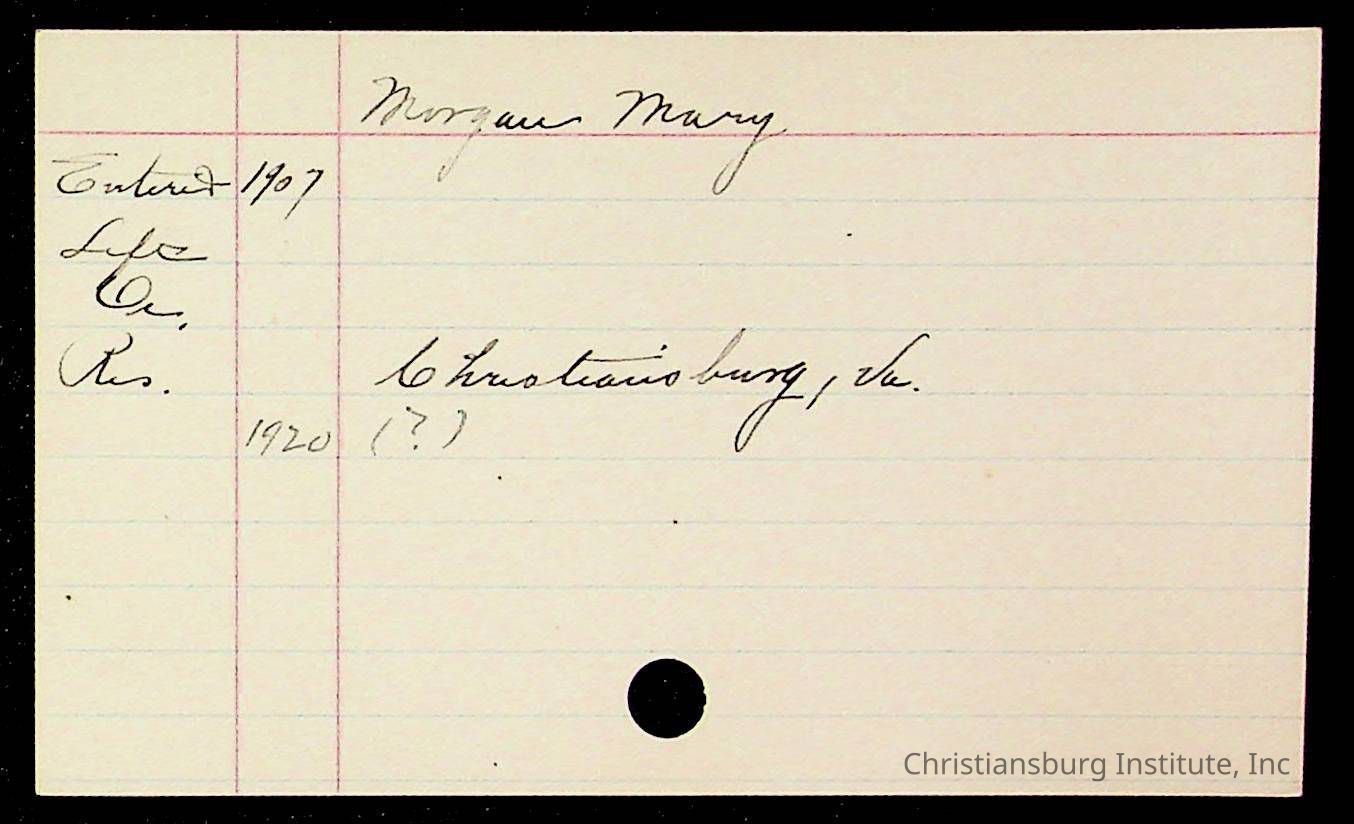 Morgan Mary
Entered 1907
Left
Oc.
Res. Christiansburg, Va.
1920 (?)
Christiansburg Institute, Inc